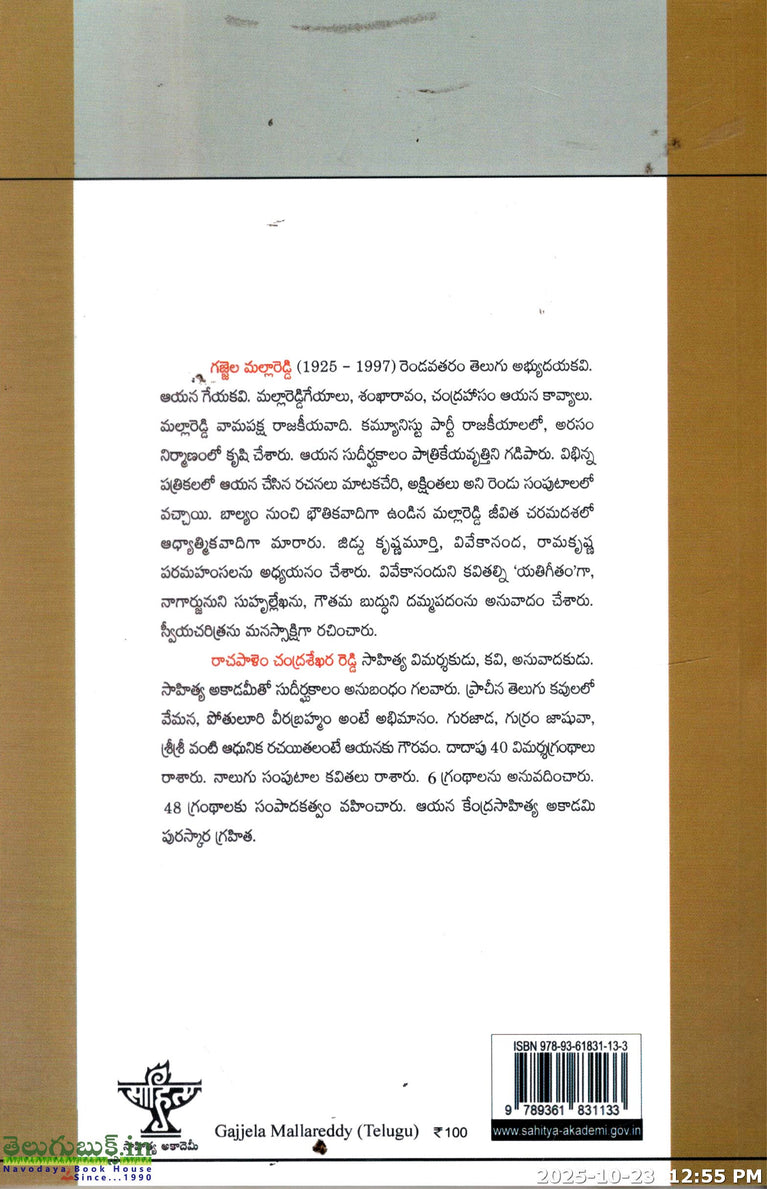 గజ్జెల మల్లారెడ్డి (1925 – 1997) రెండవతరం తెలుగు అభ్యుదయకవి.
ఆయన గేయకవి. మల్లారెడ్డిగేయాలు, శంఖారావం, చంద్రహాసం ఆయన కావ్యాలు.
మల్లారెడ్డి వామపక్ష రాజకీయవాది. కమ్యూనిస్టు పార్టీ రాజకీయాలలో, అరసం
నిర్మాణంలో కృషి చేశారు. ఆయన సుదీర్ఘకాలం పాత్రికేయవృత్తిని గడిపారు. విభిన్న
పత్రికలలో ఆయన చేసిన రచనలు మాటకచేరి, అక్షింతలు అని రెండు సంపుటాలలో
వచ్చాయి. బాల్యం నుంచి భౌతికవాదిగా ఉండిన మల్లారెడ్డి జీవిత చరమదశలో
ఆధ్యాత్మికవాదిగా మారారు. జిడ్డు కృష్ణమూర్తి, వివేకానంద, రామకృష్ణ
పరమహంసలను అధ్యయనం చేశారు. వివేకానందుని కవితల్ని ‘యతిగీతం’గా,
నాగార్జునుని సుహృల్లేఖను, గౌతమ బుద్ధుని దమ్మపదంను అనువాదం చేశారు.
స్వీయచరిత్రను మనస్సాక్షిగా రచించారు.
రాచపాళెం చంద్రశేఖర రెడ్డి సాహిత్య విమర్శకుడు, కవి, అనువాదకుడు.
సాహిత్య అకాడమీతో సుదీర్ఘకాలం అనుబంధం గలవారు. ప్రాచీన తెలుగు కవులలో
వేమన, పోతులూరి వీరబ్రహ్మం అంటే అభిమానం. గురజాడ, గుర్రం జాషువా,
శ్రీశ్రీ వంటి ఆధునిక రచయితలంటే ఆయనకు గౌరవం. దాదాపు 40 విమర్శగ్రంథాలు
రాశారు. నాలుగు సంపుటాల కవితలు రాశారు. 6 గ్రంథాలను అనువదించారు.
48 గ్రంథాలకు సంపాదకత్వం వహించారు. ఆయన కేంద్రసాహిత్య అకాడమి
పురస్కార గ్రహిత.
ISBN 978-93-61831-13-3
9 789361 831133
www.sahitya-akademi.gov.in
साहित्य
అకాదెమీ
Gajjela Mallareddy (Telugu) ₹100
తెలుగుబుక్.in
Navodaya Book House
Since...1990
2025-10-23 12:55 PM